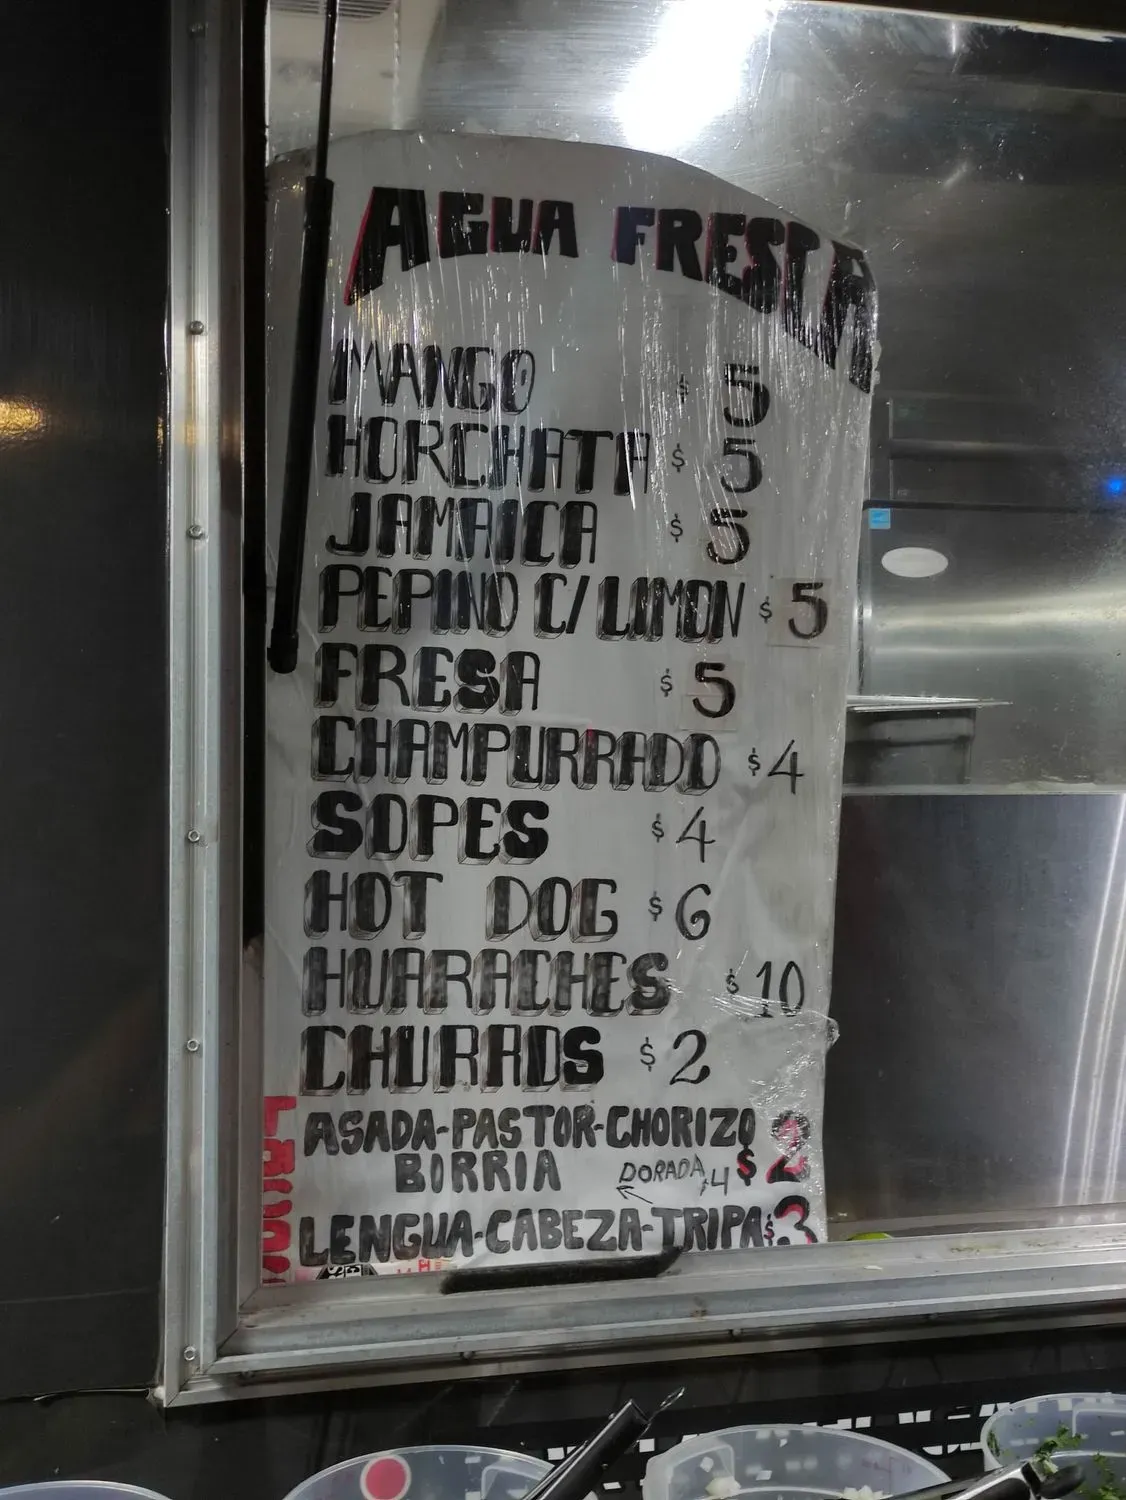 AGUA FRESCA
MANGO $ 5
HORCHATA $ 5
JAMAICA $ 5
PEPINO C/ LIMON $ 5
FRESA $ 5
CHAMPURRADO $ 4
SOPES $ 4
HOT DOG $ 6
HUARACHES $ 10
CHURROS $ 2
ASADA-PASTOR-CHORIZO $ 2
BIRRIA DORADA $4
LENGUA-CABEZA-TRIPA $3